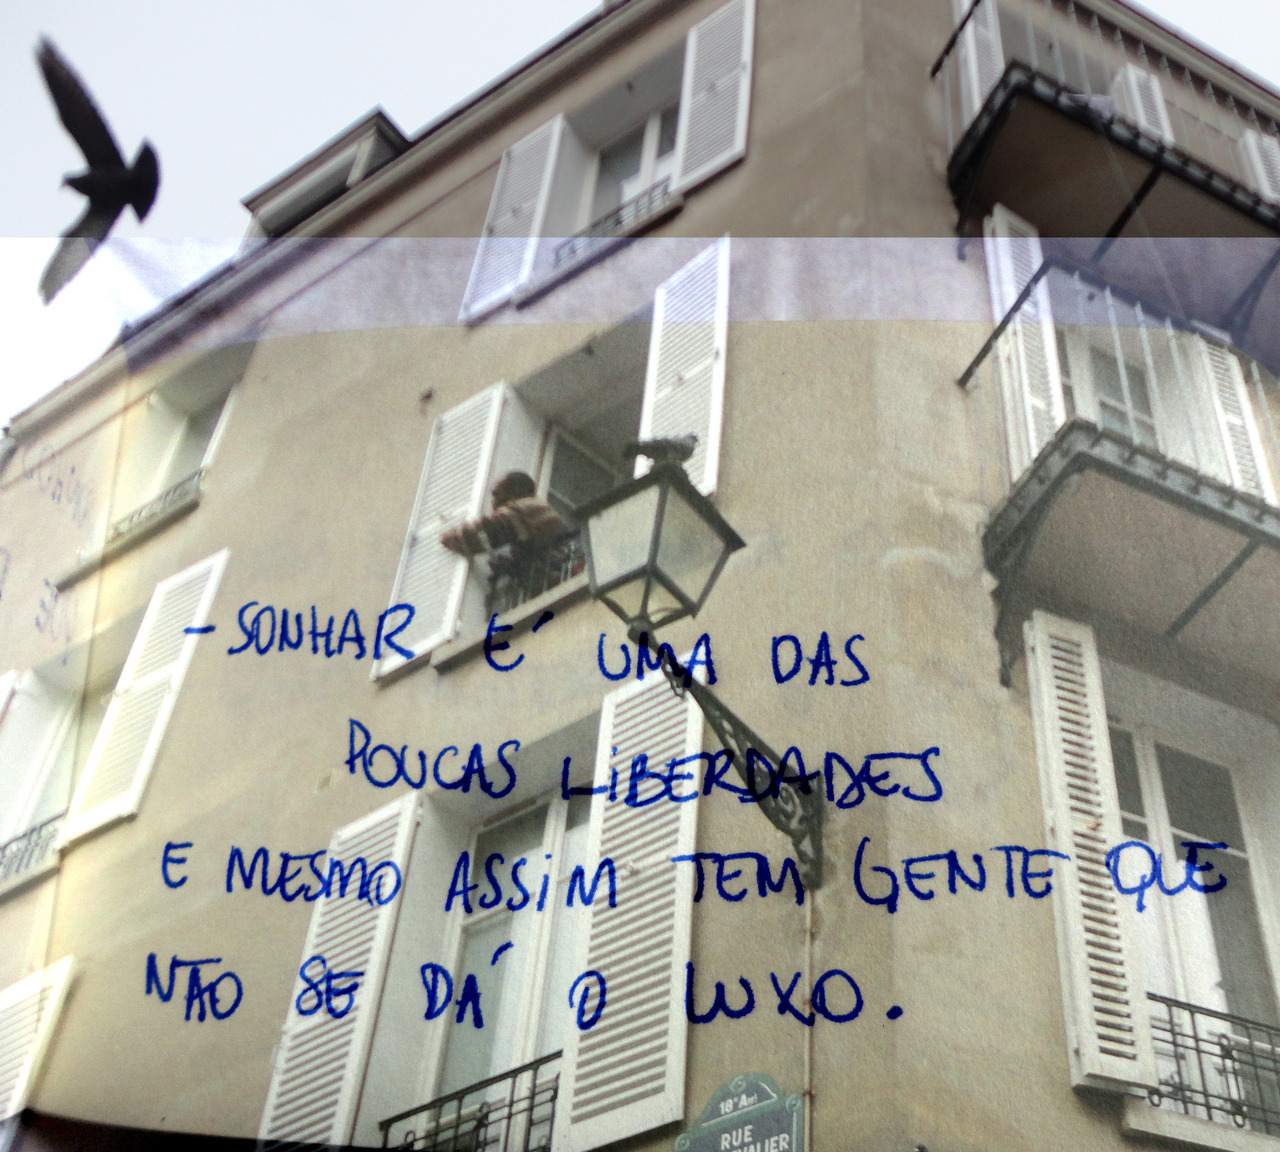 - SONHAR É UMA DAS
POUCAS LIBERDADES
E MESMO ASSIM TEM GENTE QUE
NÃO SE DÁ O LUXO.
18e Arrt
RUE